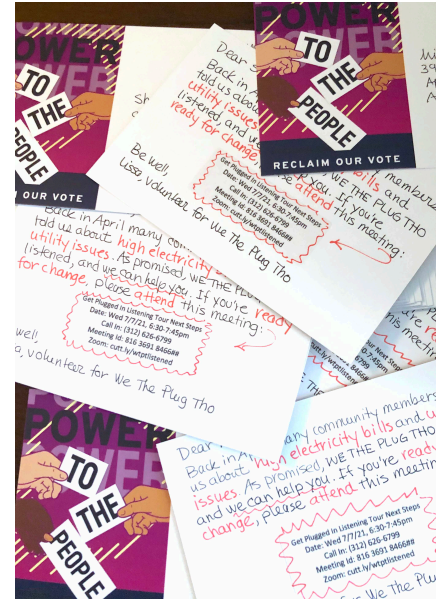 POWER
POWER
TO
THE
PEOPLE
OUR VOTE
Dear
Back in
told us about
utility issues
listened, and we
ready for change,
attend this meeting:
Get Plugged in Listening Tour Next Steps
Date: Wed 7/7/21, 6:30-7:45pm
Call in: (312) 626-6799
Meeting Id: 816 3691 8466##
Zoom: cutt.ly/wtptlistened
Be well,
Lissa, volunteer for We The Plug Tho
POWER
POWER
TO
THE
PEOPLE
RECLAIM OUR VOTE
members
bills and
WE THE PLUG THO
you. If you're
Back in April many
told us about high electricity
utility issues. As promised, WE THE PLUG
listened, and we can help you. If you're ready
for change, please attend this meeting:
Get Plugged in Listening Tour Next Steps
Date: Wed 7/7/21, 6:30-7:45pm
Call in: (312) 626-6799
Meeting Id: 816 3691 8466##
Zoom: cutt.ly/wtptlistened
well!
a, volunteer for We The Plug Tho
POWER
POWER
TO
THE
PEOPLE
Dear
Back in April many community members
us about high electricity bills and
issues. As promised, WE THE PLUG THO
and we can help you. If you're ready
change, please attend this meeting
Get Plugged in Listening Tour Next Steps
Date: Wed 7/7/21, 6:30-7:45pm
Call in: (312) 626-6799
Meeting Id: 816 3691 8466##
Zoom: cutt.ly/wtptlistened
for We The Plug